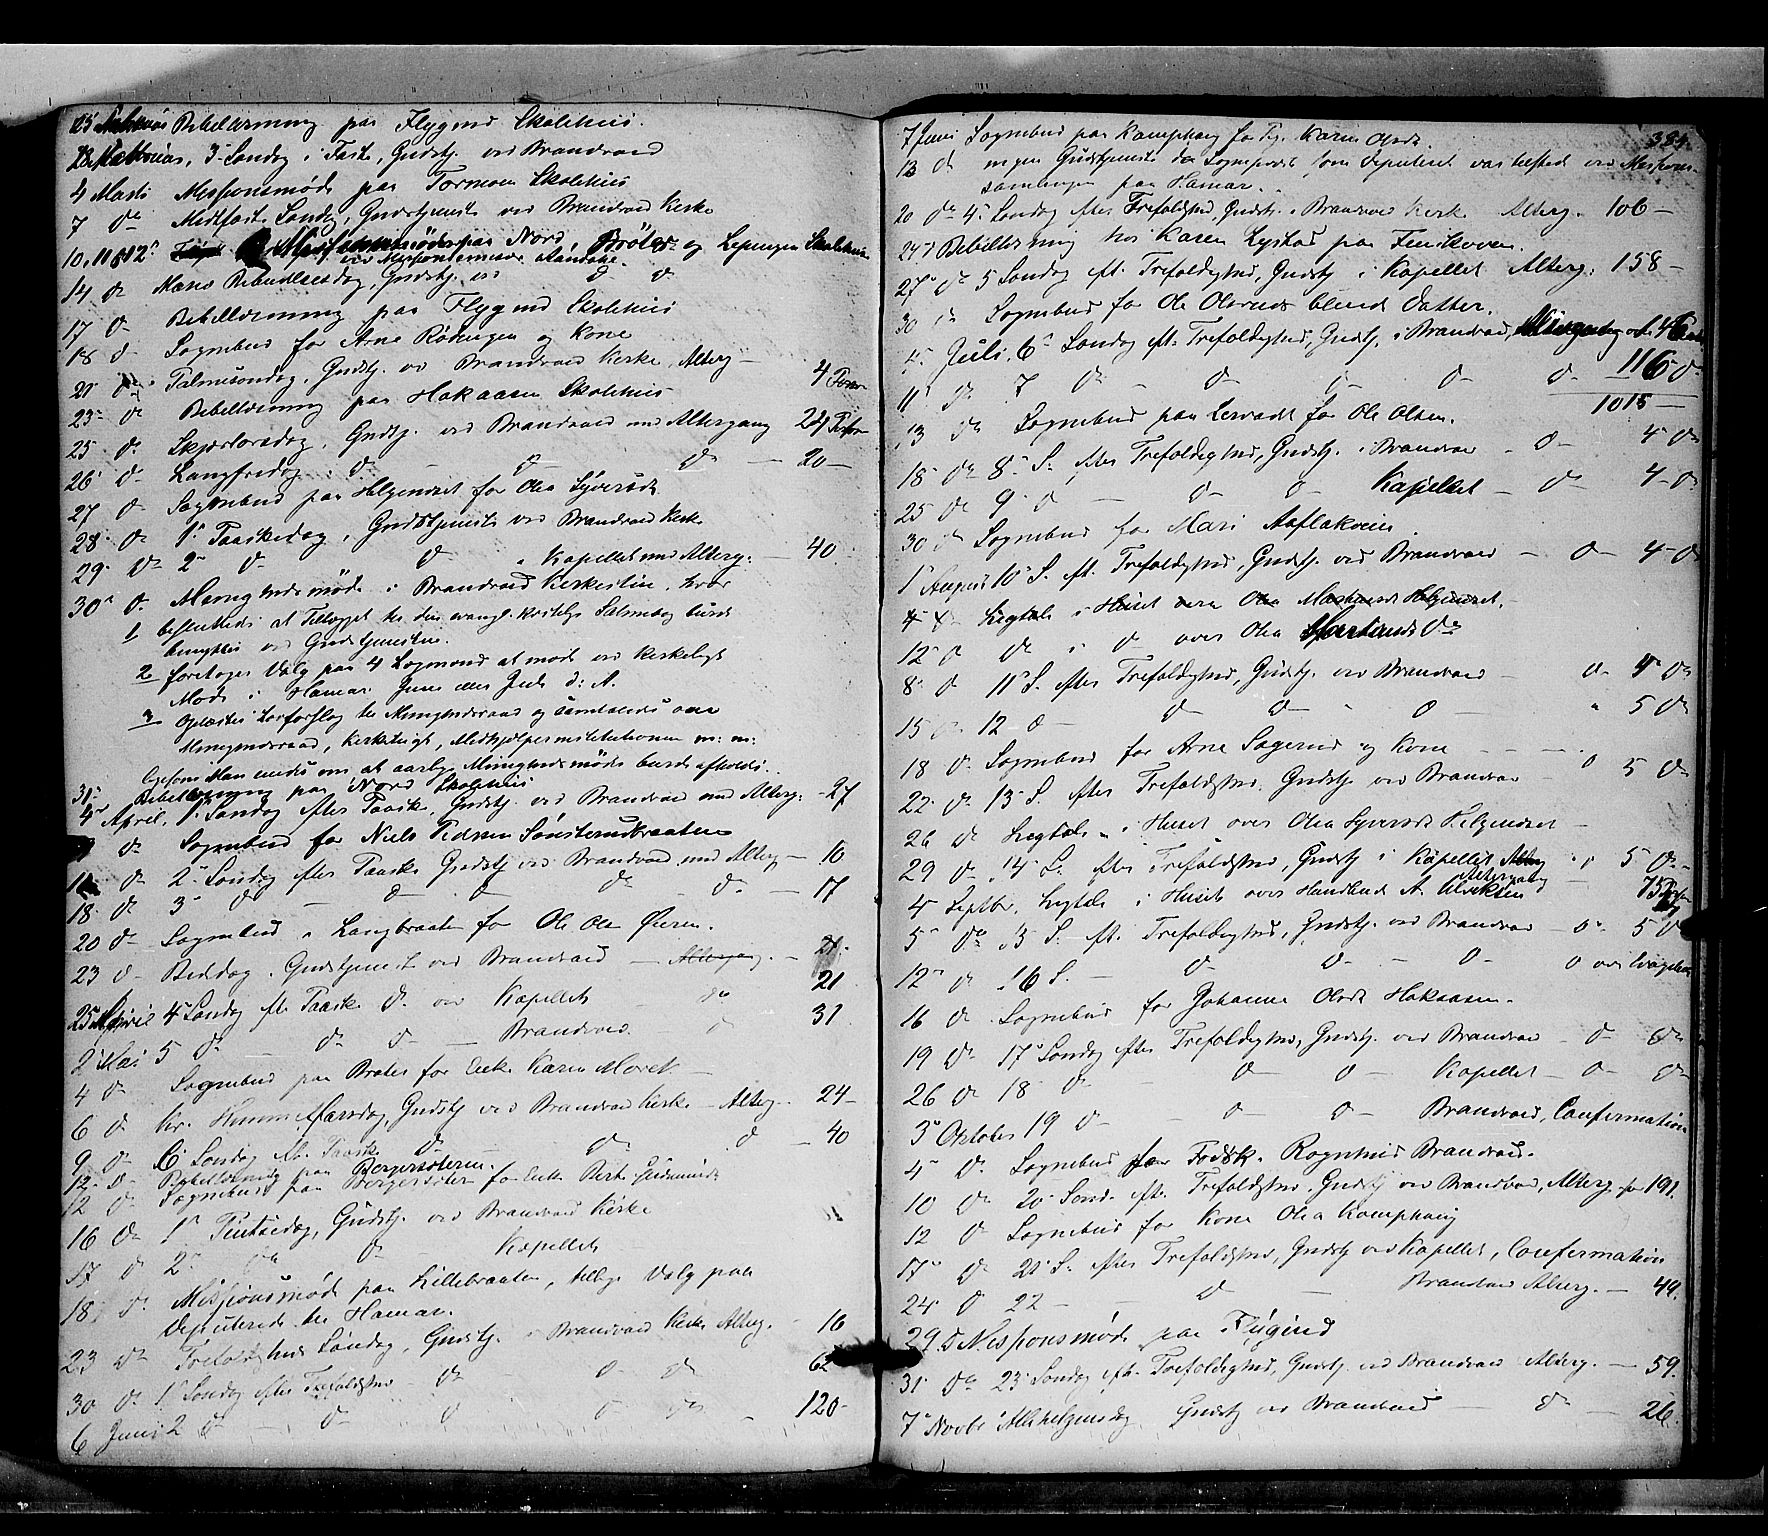 25 Bibellæsning paa Flygind Skolehuus.
28 3 Søndag i Faste, Gudstj. ved Brandvold
4 Marts Missionsmøde paa Tornæsen Skolehuus
7 do Midfaste Søndag, Gudstjeneste ved Brandvold Kirke
10, 11 & 12 Missionsmøder paa Nord, Brøter og Lepingen Skolehuse
ved Missionær
14 do Mariæ Bebudelsesdag, Gudstj. ved do do
17 do Bibellæsning paa Flygind Skolehuus
18 do Sognebud for Arne Rødningen og Kone
21 do Palmesøndag, Gudstj. ved Brandvold Kirke, Alterg. 4 Person
23 do Bibellæsning paa Hokaasen Skolehuus
25 do Skjærtorsdag, Gudstj. ved Brandvold med Altergang 24 Person
26 do Langfredag do do do 20
27 do Sognebud paa Helgeneset for Olea Syversd.
28 do 1 Paaskedag, Gudstjeneste ved Brandvold Kirke
29 do 2 do do Kapellet med Alterg. 40
30 do Menighedsmøde i Brandvold Kirkestue, hvor
1 besluttedes at Tillægget til den evangl. kristelige Salmebog burde
benyttes ved Gudstjenesten.
2 foretoges Valg paa 4 Lægmænd at møde ved kirkeligt
Møde i Hamar Juni eller Juli d: A.
3 Oplæstes Lovforslag til Menighedsraad og samtaledes om
Menighedsraad, Kirketugt, Medhjælperinstitutionen m: m:
ligesom Man enedes om at aarlige Menighedsmøde burde afholdes.
31 Bibellæsning paa Nord Skolehuus
4 April, 1 Søndag efter Paaske, Gudstj. ved Brandvold med Alterg. 27
do Sognebud for Niels Pedersen Sønsterudbraaten
11 do 2 Søndag efter Paaske Gudstj. ved Brandvold med Alterg. 10
18 do 3 do do do do do 17
20 do Sognebud i Langbraaten for Ole Olsen Øieren.
23 do Bededag, Gudstjeneste ved Brandvold Altergang. 21.
25 April 4 Søndag eft. Paaske do ved Kapellet do 21
2 Mai 5 do do do Brandvold do 31
4 do Sognebud paa Brøter for Enke Karen Moret
6 do Kr. Himmelfartsdag, Gudstj. ved Brandvold Kirke Alterg. 24
9 do 6 Søndag eft. Paaske do do do 40
12 do Bibellæsning paa Bergersæteren.
12 do Sognebud paa Bergersæter for Enke Berte Gudmundsd.
16 do 1 Pintsedag, Gudstj. ved Brandvold Kirke
17 do 2 do do Kapellet
18 do Missionsmøde paa Lillebraaten, tillige Valg paa
Deputerede til Hamar.
23 do Trefoldigheds Søndag, Gudstj. i Brandvold Kirke Alterg. 16
30 do 1 Søndag efter Trefoldighed do do do 62
6 Juni 2 do do do do do 120
384.
7 Juni Sognebud paa Kamphaug for Pig. Karen Olsd.
13 do ingen Gudstjeneste da Sognepræst som Deputeret var tilstede ved Missions-
samlingen paa Hamar.
20 do 4 Søndag efter Trefoldighed, Gudstj. i Brandvold Kirke Alterg. 106
24 Bibellæsning hos Karen Lystad paa Finskoven.
27 do 5 Søndag eft. Trefoldighed, Gudstj. i Kapellet Alterg. 158
30 do Sognebud for Ole Olsruds blinde Datter.
4 Juli, 6 Søndag eft. Trefoldighed, Gudstj. i Brandvold, Altergang
11 do 7 do do do do do 116 do
1015
13 do Sognebud paa for Ole Olsen.
18 do 8 S. efter Trefoldighed, Gudstj. i Brandvold do 4 do
25 do 9 do do do Kapellet do 4 do
30 do Sognebud for Mari
1 August 10 S. eft. Trefoldighed, Gudstj. ved Brandvold do 4 do
4 do Liigtale i Huset over Olea Helgeneset.
12 do do i do over Olea do
8 do 11 S. efter Trefoldighed, Gudstj. ved Brandvold do 4 do
15 do 12 do do do do 5 do
18 do Sognebud for Arne Sagerud og Kone
22 do 13 S. efter Trefoldighed, Gudstj. ved Brandvold do 5 do
26 do Liigtale i Huset over Olea Syversd. Helgeneset
29 do 14 S. efter Trefoldighed, Gudstj. i Kapellet 5 do
Altergang
4 Septbr. Liigtale i Huset over Handlende A. 75
5 do 15 S. eft. Trefoldighed, Gudstj. ved Brandvold do 5 do
12 do 16 S. do do do do
16 do Sognebud for Johanne Olsd. Hokaasen.
19 do 17 Søndag efter Trefoldighed, Gudstj. ved Brandvold do do
26 do 18 do do do Kapellet do do
3 Oktober 19 do do do Brandvold, Confirmation
4 do Sognebud for Fødsk. Ragnhild Brandvold.
10 do 20 Sønd. eft. Trefoldighed, Gudstj. ved Brandvold, Alterg. for 191.
12 do Sognebud for Kone Olea Kamphaug
17 do 21 S. efter Trefoldighed, Gudstj. ved Kapellet, Confirmation
24 do 22 do Brandvold Alterg. 49.
29 do Missionsmøde paa Flygind
31 do 23 Søndag eft. Trefoldighed, Gudstj. ved Brandvold Alterg. 59.
7 Novbr Allehelgensdag Gudstj. ved Brandvold do 26.